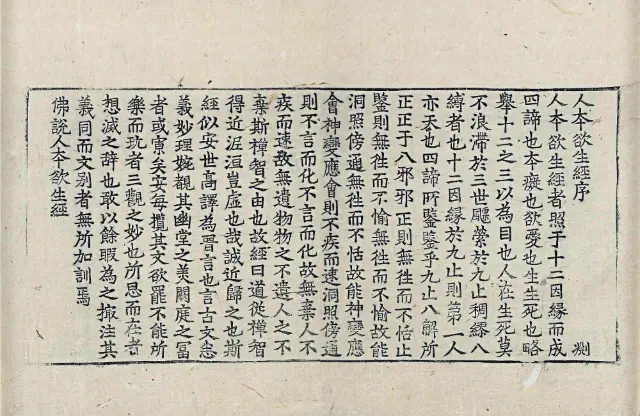 人夲欲生經序
人夲欲生經者照于十二因緣而成
四諦也夲癡也欲愛也生生死也略
舉十二之三以為目也人在生死莫
不浪滯於三世飄縈於九止稠繆八
縛者也十二因緣於九止則第一人
亦天也四諦所鑒鑒乎九止八解所
正正于八邪邪正則無徃而不恬止
鑒則無徃而不愉無徃而不愉故能
洞照傍通無徃而不恬故能神變應
會神變應會則不疾而速洞照傍通
則不言而化不言而化故無棄人不
疾而速故無遺物物之不遺人之不
棄斯禪智之由也故經曰道從禪智
得近泥洹豈虛也哉誠近歸之也斯
經似安世高譯為晉言也言古文悉
義妙理婉覩其幽堂之美闕庭之富
者或寡矣安每攬其文欲罷不能所
樂而玩者三觀之妙也所思而在者
想滅之辭也敢以餘暇為之撮注其
義同而文別者無所加訓焉
佛說人夲欲生經